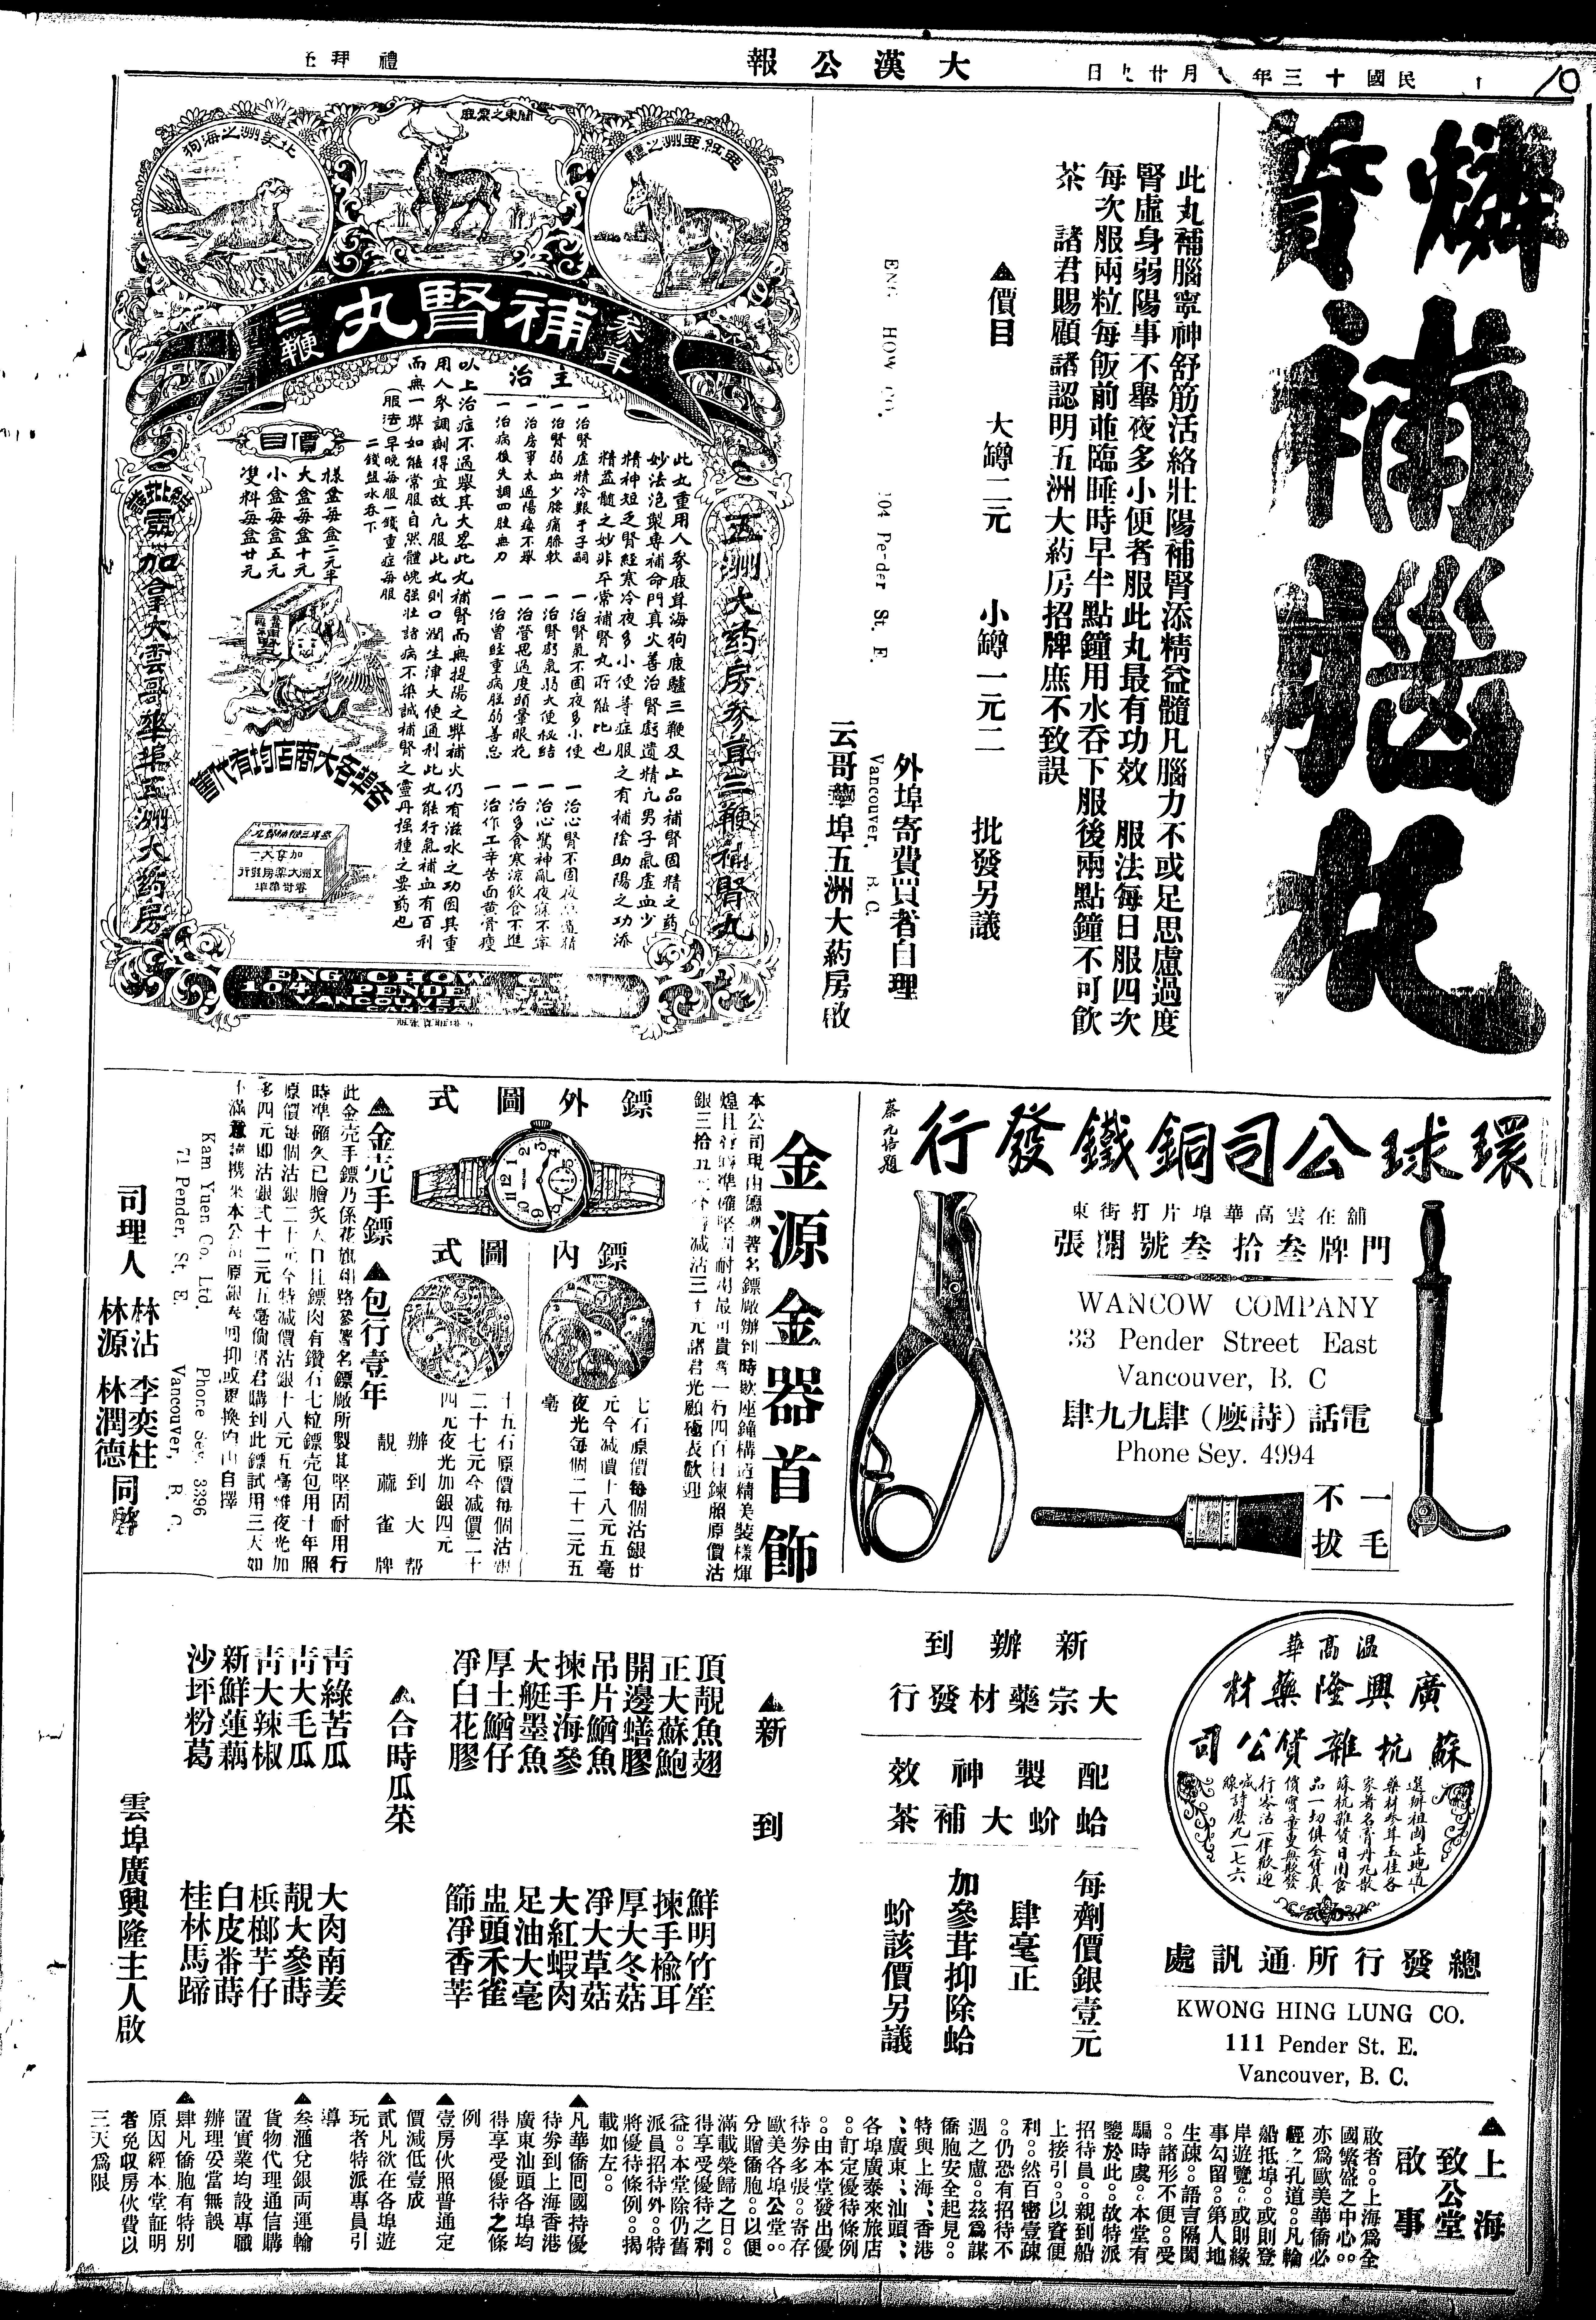 大漢公報
民國十三年 月廿 日
禮拜
燐質補腦丸
此丸補腦寧神舒筋活絡壯陽補腎添精益髓凡腦力不或足思慮過度
腎虛身弱陽事不舉夜多小便者服此丸最有功效 服法每日服四次
每次服兩粒每飯前並臨睡時早半點鐘用水吞下服後兩點鐘不可飲
茶 諸君賜顧請認明五洲大葯房招牌庶不致誤
▲價目 大罇二元 小罇一元二 批發另議
外埠寄費買者自理
ENG HOW CO. 104 Pender St. E. Vancouver, B.C.
云哥華埠五洲大葯房啟
亞細亞洲之驢
關東之梁鹿
北美洲之海狗
參茸三鞭補腎丸
五洲大葯房參茸三鞭補腎丸
此丸重用人參鹿茸海狗鹿驢三鞭及上品補腎固精之葯
妙法泡製專補命門真火善治腎虧遺精凢男子氣虛血少
精神短乏腎經寒冷夜多小便等症服之有補陰助陽之功添
精益髓之妙非平常補腎丸所能比也
主治
一治腎虛精冷艱于子嗣 一治腎氣不固夜多小便
一治腎弱血少腰痛膝軟 一治腎虧氣弱大便秘結 一治心驚神亂夜寐不寧
一治房事太過陽痿不舉 一治營思過度頭暈眼花 一治多食寒涼飲食不進
一治病後失調四肢無力 一治曾經重病胵弱善忘 一治作工辛苦面黃骨瘦
以上治症不過舉其大畧此丸補腎而無提陽之弊補火仍有滋水之功因其重
用人參調劑得宜故凢服此丸則口潤生津大便通利此丸能行氣補血有百利
而無一弊如能常服自然體魄强壯諸病不染誠補腎之靈丹强種之要葯也
(服法)早晚每服一錢重症每服
二錢鹽水吞下
價目
樣盒每盒二元半
大盒每盒十元
小盒每盒五元
雙料每盒廿元
各埠各大商店均有代售
加拿大雲哥華埠五洲大葯房
ENG CHOW CO.
104 PENDER ST.
VANCOUVER
CANADA
環球公司銅鐵發行
蔡元培題
舖在雲高華埠片打街東
門牌叁拾叁號開張
WANCOW COMPANY
33 Pender Street East
Vancouver, B. C
電話(詩麼)肆九九肆
Phone Sey. 4994
一毛不拔
金源金器首飾
鏢外圖式
鏢內圖式
七石原價每個沽銀廿
元今減價十八元五毫
夜光每個二十二元五
毫
十五石原價每個沽銀
二十七元今減價二十
四元夜光加銀四元
辦到大帮
靚蔴雀牌
▲金壳手鏢 ▲包行壹年
Kam Yuen Co. Ltd. Phone Sey. 3396
71 Pender, St. E. Vancouver, B. C.
司理人 林沾 李奕柱 林源 林潤德 同啓
溫高華
廣興隆藥材
蘇杭雜貨公司
選辦祖國正地道
藥材參茸玉桂各
家著名膏丹丸散
蘇杭雜貨日用食
品一切俱全貨真
價實童叟無欺發
行零沽一律歡迎
喊線詩麽九一七六
總發行所通訊處
KWONG HING LUNG CO.
111 Pender St. E.
Vancouver, B. C.
新辦到
大宗藥材發行
配製神效
蛤蚧大補茶
每劑價銀壹元
肆毫正
加參茸抑除蛤
蚧該價另議
▲新到
頂靚魚翅 鮮明竹笙
正大蘇鮑 揀手榆耳
開邊鱔膠 厚大冬菇
吊片鰌魚 凈大草菇
揀手海參 大紅蝦肉
大艇墨魚 足油大毫
厚土鰌仔 盅頭禾雀
凈白花膠 篩凈香莘
▲合時瓜菜
靑綠苦瓜 大肉南姜
靑大毛瓜 靚大參蒔
靑大辣椒 檳榔芋仔
新鮮蓮藕 白皮番蒔
沙坪粉葛 桂林馬蹄
雲埠廣興隆主人啟
▲上海致公堂啟事
敢者。。上海爲全
國繁盛之中心。。
亦爲歐美華僑必
經之孔道。。凡輪
船抵埠。。或則登
岸遊覽。。或則緣
事勾留。。第人地
生疎。。語言隔閡
。。諸形不便。。受
騙時虞。。本堂有
鑒於此。。故特派
招待員。。親到船
上接引。。以資便
利。。然百密壹疎
。。仍恐有招待不
週之慮。。茲爲謀
僑胞安全起見。。
特與上海、香港
、、廣東、、汕頭、、
各埠廣泰來旅店
。。訂定優待條例
。。由本堂發出優
待劵多張。。寄存
歐美各埠公堂。。
分贈僑胞。。以便
滿載榮歸之日。。
得享受優待之利
益。。本堂除仍舊
派員招待外。。特
將優待條例。。揭
載如左。。
▲凡華僑囘國持優
待劵到上海香港
廣東汕頭各埠均
得享受優待之條
例
▲壹房伙照普通定
價減低壹成
▲貳凡欲在各埠遊
玩者特派專員引
導
▲叁滙兌銀両運輸
貨物代理通信購
置實業均設專職
辦理妥當無誤
▲肆凡僑胞有特別
原因經本堂証明
者免収房伙費以
三天爲限